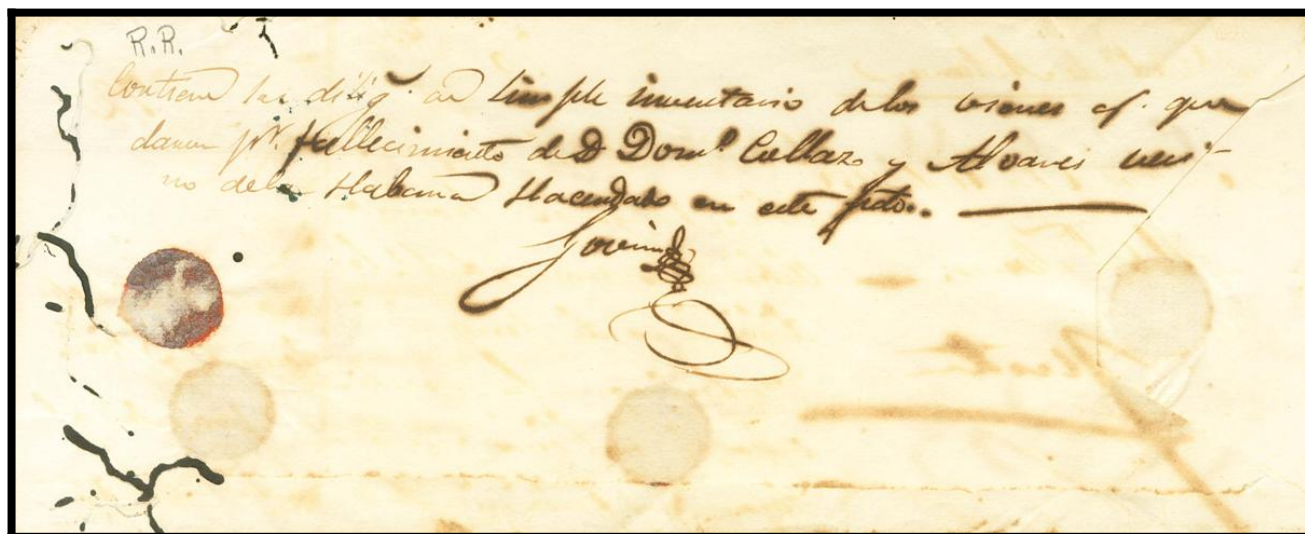 R.R.
Contiene las dilig.s de simple inventario delos vienes q.e que
daron p.r fallecimiento de D Dom.o Collazo y Alvares veci
no dela Habana Hacendado en este